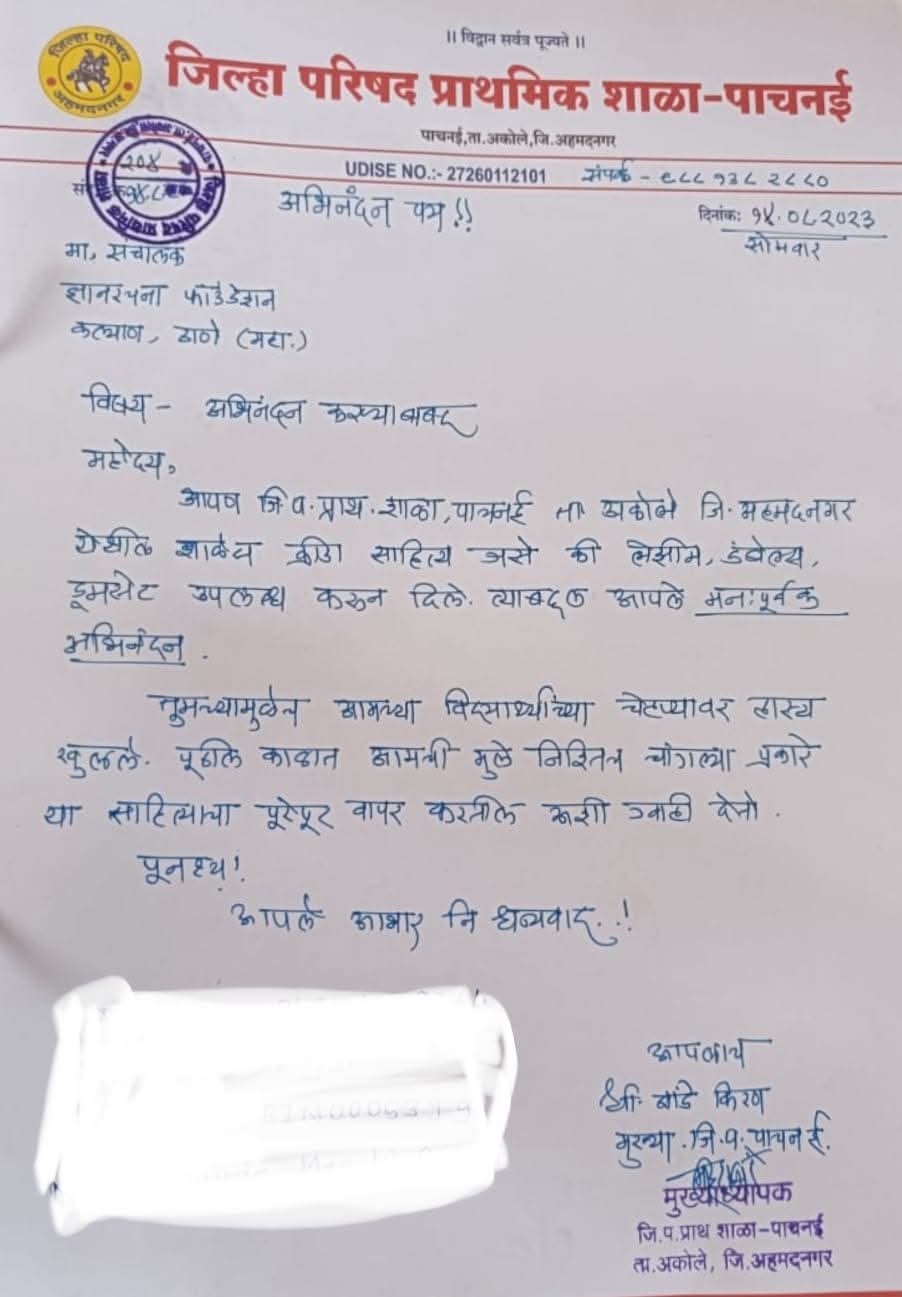 ॥ विद्वान सर्वत्र पूज्यते ॥
जिल्हा परिषद
अहमदनगर
जिल्हा परिषद प्राथमिक शाळा-पाचनई
पाचनई,ता.अकोले,जि.अहमदनगर
UDISE NO.:- 27260112101 संपर्क - ९८८१३८२८८०
अभिनंदन पत्र!!
दिनांक: १४.०८.2023
सोमवार
मा. संचालक
ज्ञानरचना फाउंडेशन
कल्याण, ठाणे (महा.)
विषय - अभिनंदन करण्याबाबद
महोदय,
आपण जि.प.प्राथ.शाळा,पाचनई ता अकोले जि.अहमदनगर
येथील शाळेय क्रीडा साहित्य जसे की लेझीम, डंबेल्स,
ड्रमसेट उपलब्ध करुन दिले. त्याबद्दल आपले मनःपूर्वक
अभिनंदन.
तुमच्यामुळेच आमच्या विद्यार्थ्यांच्या चेहऱ्यावर हास्य
खुलले. पूढील काळात आमची मुले निश्चितच चांगल्या प्रकारे
या साहित्याचा पूरेपूर वापर करतील अशी ग्वाही देतो.
पूनश्च!
आपले आभार नि धन्यवाद..!
आपलाच
श्री. बांडे किरण
मुख्या. जि.प. पाचनई.
मुख्याध्यापक
जि.प.प्राथ शाळा-पाचनई
ता.अकोले, जि.अहमदनगर